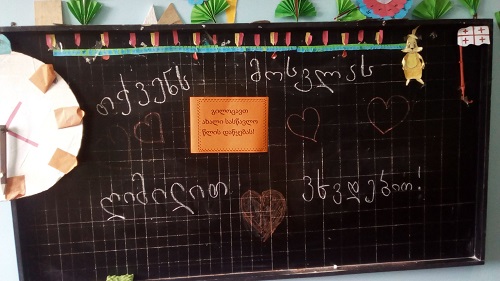 თქვენს მოსვლას
გილოცავთ
ახალი სასწავლო
წლის დაწყებას!
ღიმილით ვხვდებით!